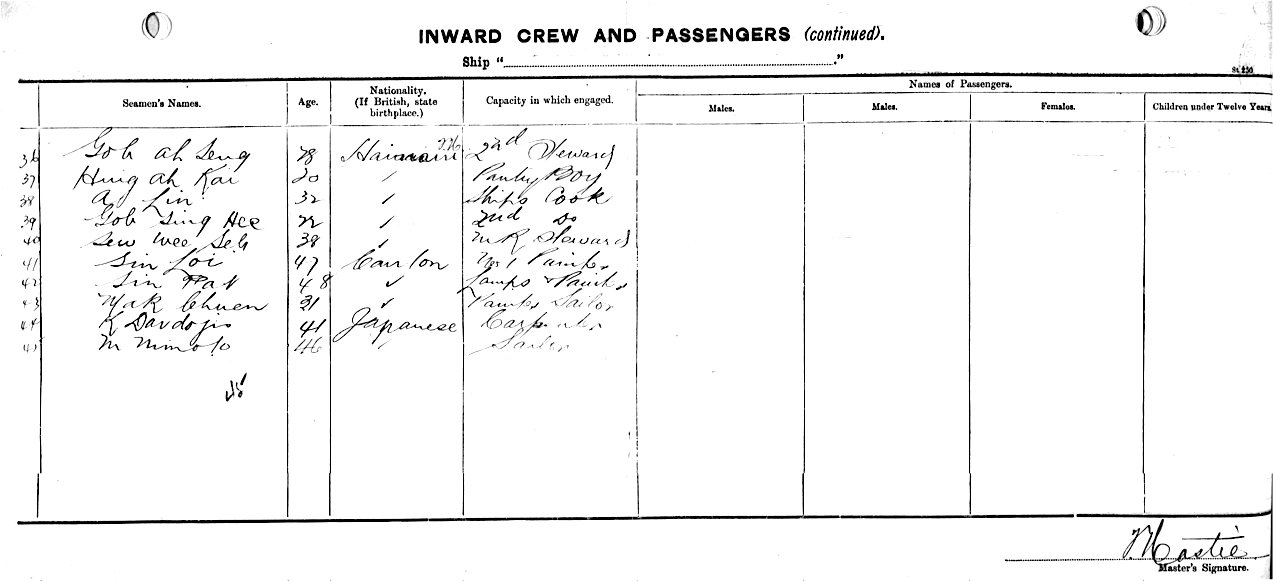 INWARD CREW AND PASSENGERS (continued).
Ship "                    ."
Seamen's Names. Age. Nationality. (If British, state birthplace.) Capacity in which engaged. Names of Passengers.
Males. Males. Females. Children under Twelve Years.
36 Goh ah Seng 28 2nd Steward
37 Hing ah Kai 20 " Pantry Boy
38 Ah Lin 32 " Ships Cook
39 Goh Sing Hee 22 " 2nd Do
40 Sew Wee Seh 38 " M R Steward
41 Sin Loi 47 Canton No 1
42 Sin 48 " Lamps &
43 Mak Chuen 31 " Sailor
44 K 41 Japanese Carpenter
45 M Nimoto 46 " Sailor
45
Master's Signature.